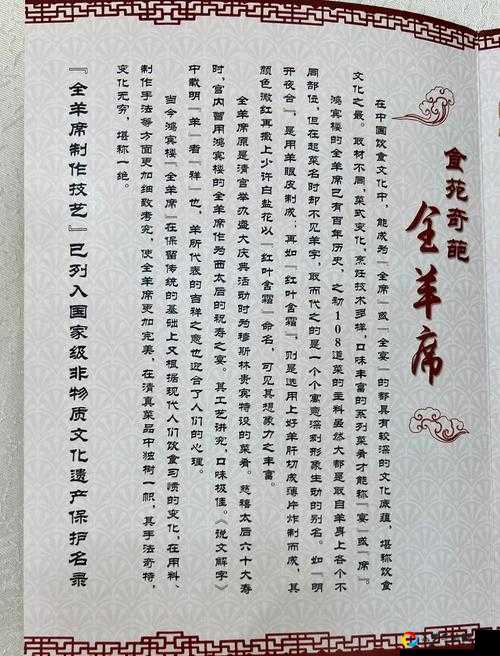 食苑奇葩
全羊席
在中国饮食文化中，能成为“全席”或“全宴”的都具有较深的文化底蕴，堪称饮食
文化之最。取材不同，菜式变化，烹饪技术多样，口味丰富的系列菜肴才能称“宴”或“席”。
鸿宾楼的全羊席已有百年历史，之初108道菜的主料虽然大都是取自羊身上各个不
同部位，但在起菜名时却不见羊字，取而代之的是一个个寓意深刻形象生动的别名。如“明
开夜合”，是用羊眼皮制成；再如“红叶含霜”，则是选用上好羊肝切成薄片炸制而成，其
颜色微红再撒上少许白盐花以“红叶含霜”命名，可见其想象力之丰富。
全羊席原是清宫举办盛大庆典活动时为穆斯林贵宾特设的菜肴。慈禧太后六十大寿
时，宫内曾用鸿宾楼的全羊席作为西太后的祝寿之宴。其工艺讲究，口味极佳。《说文解字》
中载明“羊”者“祥”也，羊所代表的吉祥之意也迎合了人们的心理。
当今鸿宾楼“全羊席”在保留传统的基础上又根据现代人们饮食习惯的变化，在用料、
制作手法等方面更加细致考究，使全羊席更加完美，在清真菜品中独树一帜，其手法奇特，
变化无穷，堪称一绝。
『全羊席制作技艺』已列入国家级非物质文化遗产保护名录